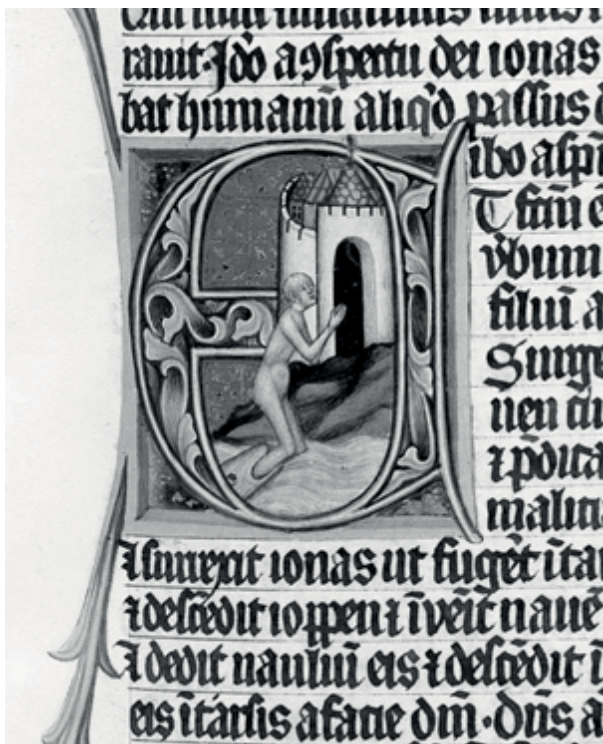 rauit · Jdo a ɔspectu dei ionas
bat humanū aliqd passus
ibo
E T fcm̄ e
vbum
filiū a
Surge
uen
⁊ pdica
malici
⁊ surrexit ionas ut fugēt ītar
⁊ descēdit ioppen ⁊ īveīt nauē
⁊ dedit naulū eis ⁊ descēdit ī
eis ītarsis a facie dm̄ · dn̄s a